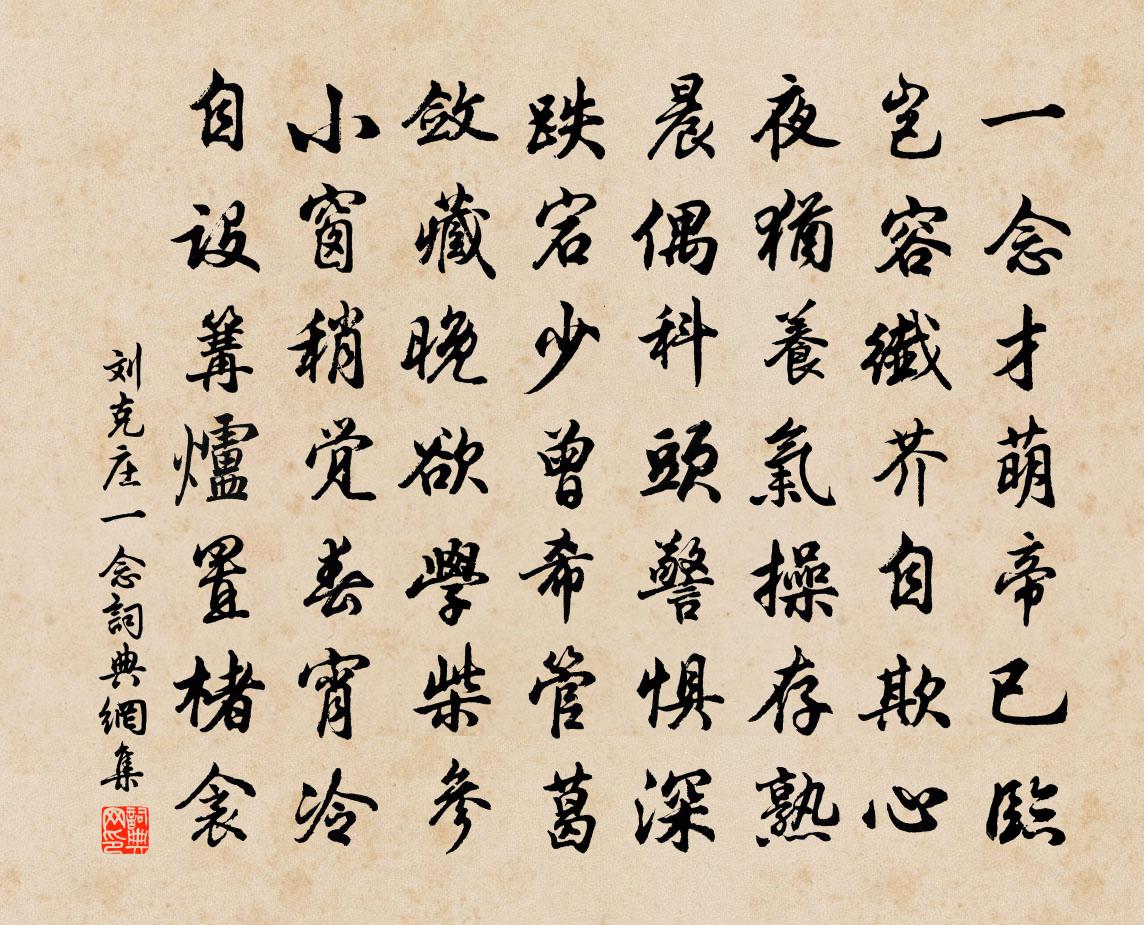 一念才萌帝已臨
豈容纖芥自欺心
夜猶養氣操存熟
晨偶科頭警惧深
跌宕少曾希管葛
斂藏晚欲學柴參
小窗稍觉春宵冷
自设篝爐置楮衾
刘克庄一念詞典網集
詞典网印